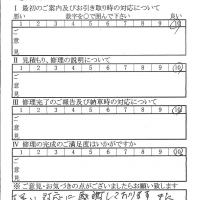 I 最初のご案内及びお引き取り時の対応について
悪い 数字を○で囲んで下さい 良い
1 2 3 4 5 6 7 8 9 10
ご意見
II 見積もり、修理の説明について
1 2 3 4 5 6 7 8 9 10
ご意見
III 修理完了のご報告及び納車時の対応について
1 2 3 4 5 6 7 8 9 10
ご意見
IV 修理の完成のご満足度はいかがですか
1 2 3 4 5 6 7 8 9 10
ご意見
※ご意見・お気づきの点がございましたらお願い致します
対応に感謝しております